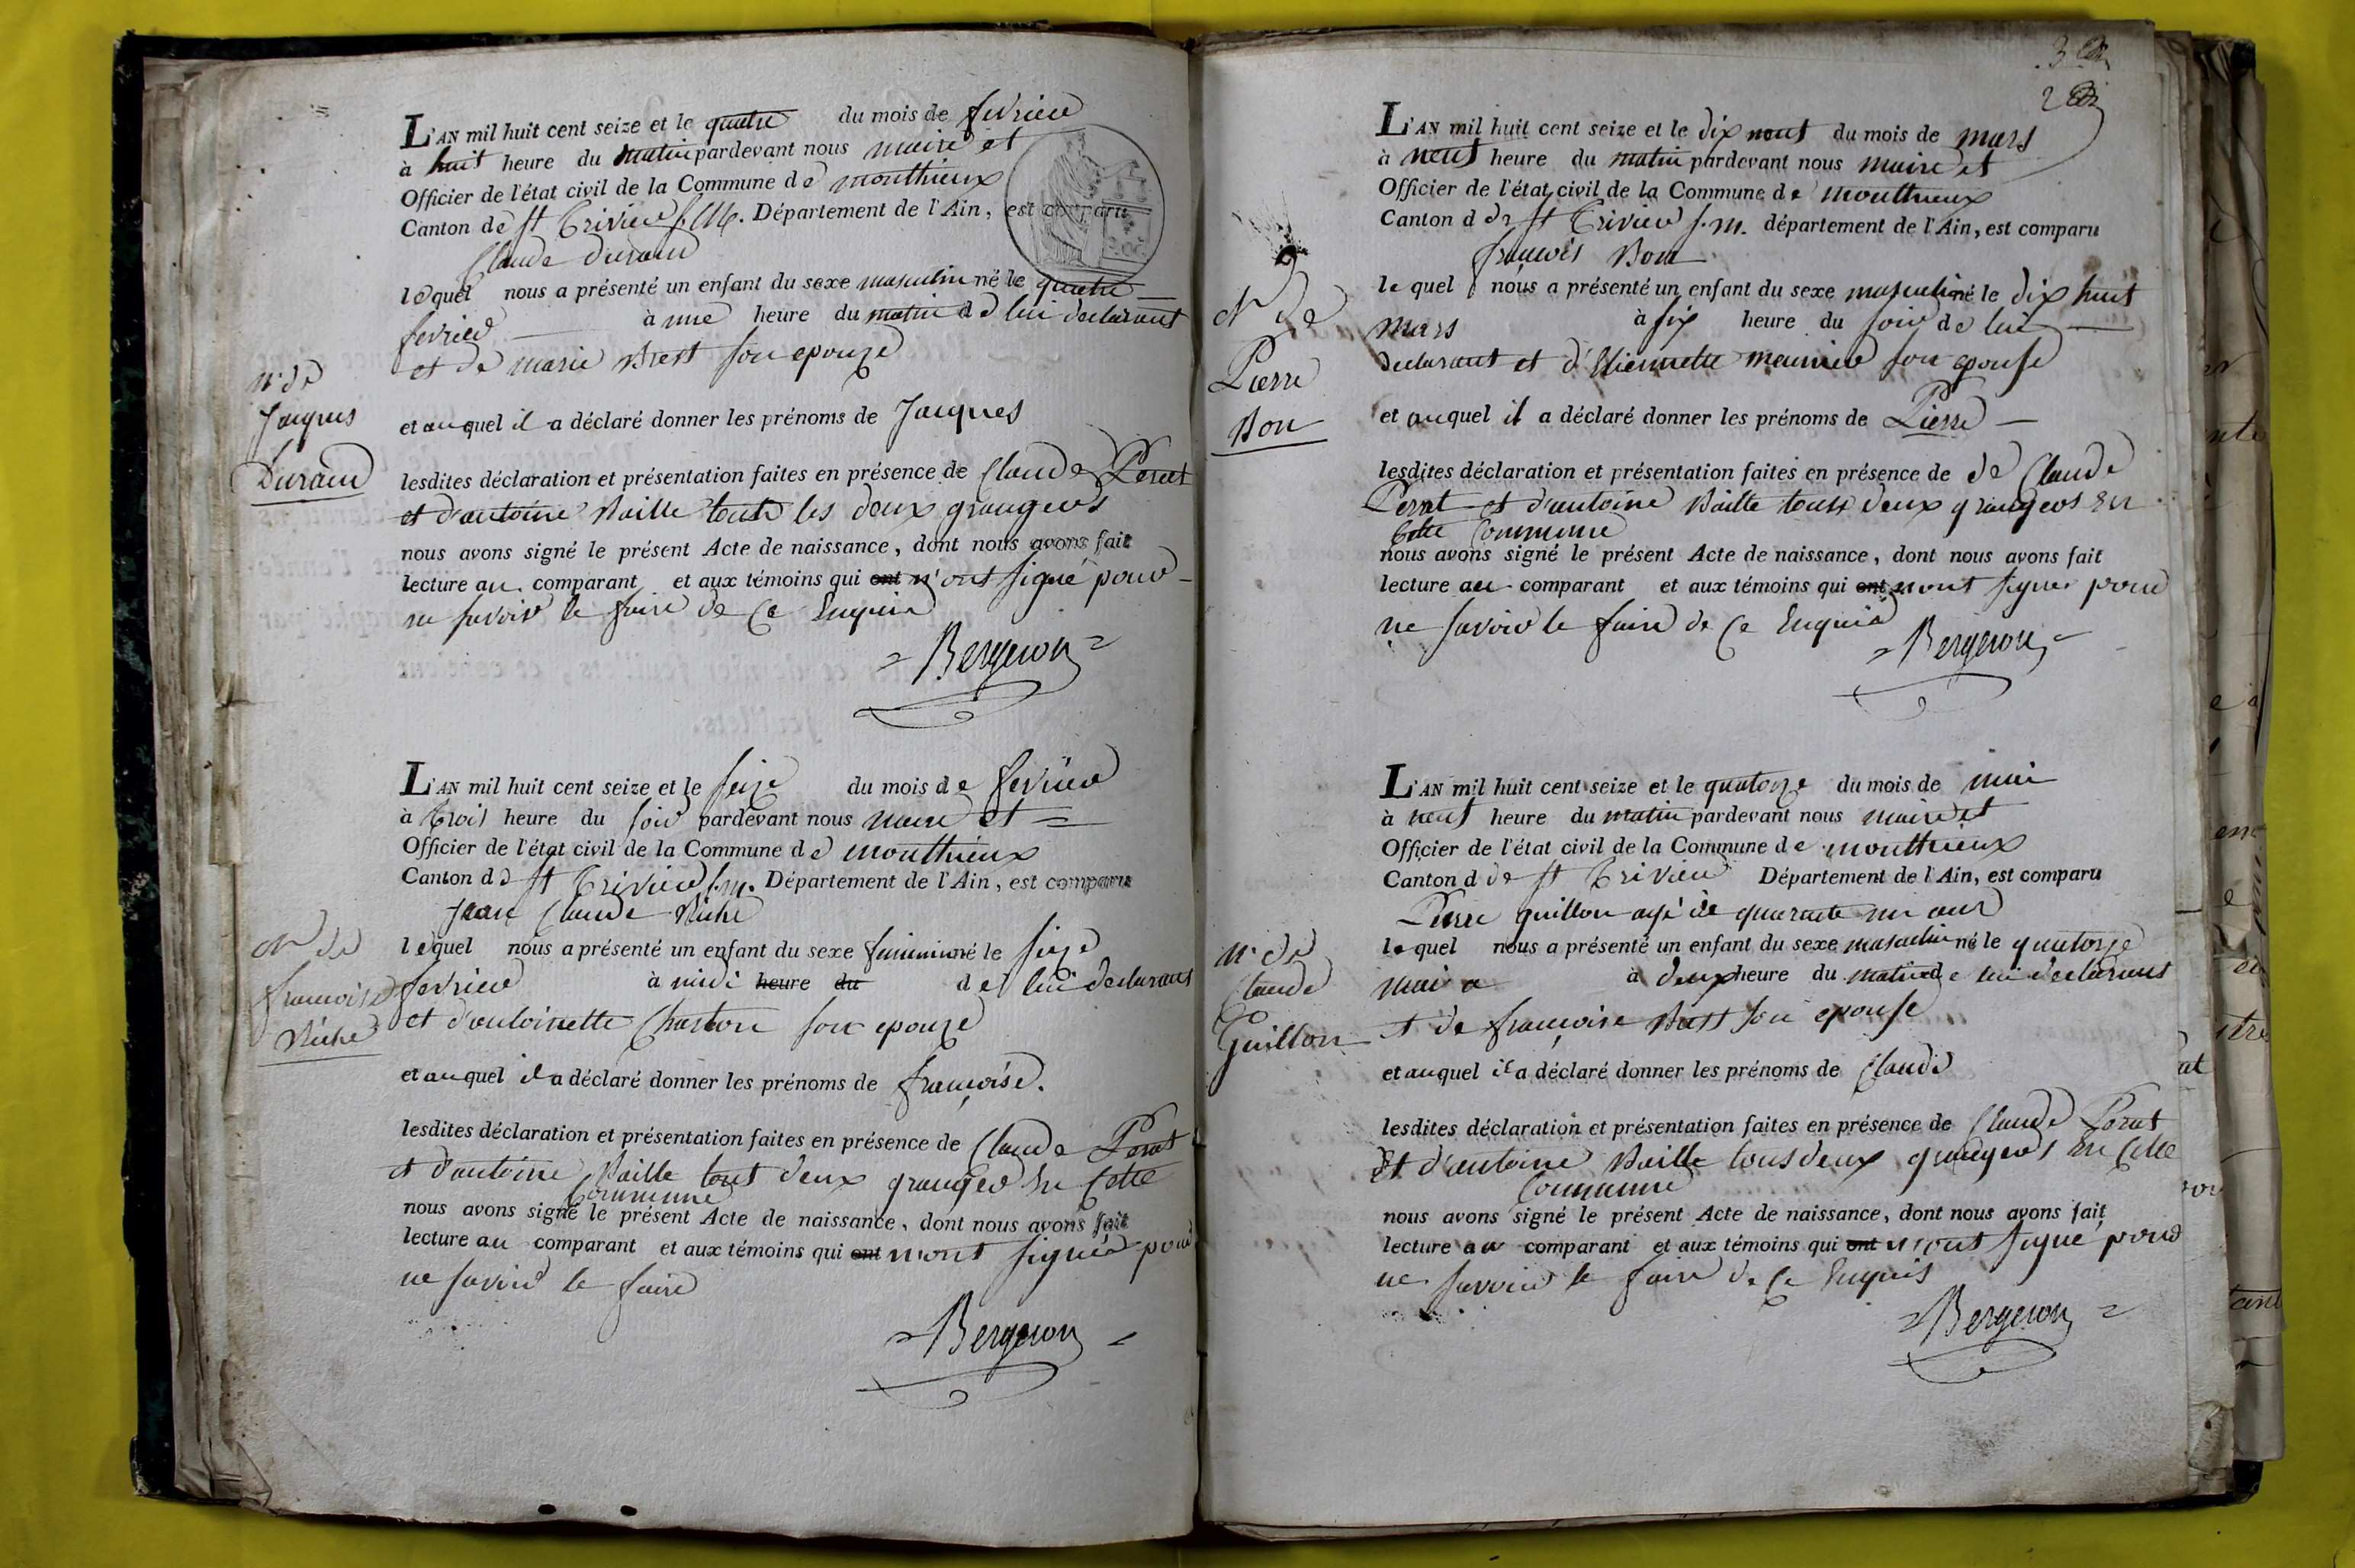 L'AN mil huit cent seize et le quatre du mois de fevrier
à huit heure du matin pardevant nous maire et
Officier de l'état civil de la Commune de monthieux
Canton de st Trivier s. M. Département de l'Ain, est comparu
Claude Durand
lequel nous a présenté un enfant du sexe masculin né le quatre
fevrier à une heure du matin de lui declarant
et de marie Brest son epouze
N. de
Jacques
Durand
et auquel il a déclaré donner les prénoms de Jacques
lesdites déclaration et présentation faites en présence de Claude Perret
et d'antoine Baille tout les deux grangers
nous avons signé le présent Acte de naissance, dont nous avons fait
lecture au comparant et aux témoins qui ont n'ont signé pour
ne savoir le faire de ce Enquis
Bergeron
L'AN mil huit cent seize et le seize du mois de fevrier
à trois heure du soir pardevant nous maire et
Officier de l'état civil de la Commune de monthieux
Canton de st Trivier s. m. Département de l'Ain, est comparu
Jean Claude Riche
N. de
francoise
Riche
lequel nous a présenté un enfant du sexe feminin né le seize
fevrier à midi heure du de lui declarant
et d'antoinette Charton son epouze
et auquel il a déclaré donner les prénoms de françoise.
lesdites déclaration et présentation faites en présence de Claude Perret
et d'antoine Baille tout deux granger En Cette
Commune
nous avons signé le présent Acte de naissance, dont nous avons fait
lecture au comparant et aux témoins qui ont n'ont signé pour
ne savoir le faire
Bergeron
3
2
L'AN mil huit cent seize et le dix neuf du mois de mars
à neuf heure du matin pardevant nous maire et
Officier de l'état civil de la Commune de monthieux
Canton d de st Trivier s. m. département de l'Ain, est comparu
françois Bon
le quel nous a présenté un enfant du sexe masculin né le dix huit
mars à six heure du soir de lui
declarant et d'Etiennette meunier son epouse
N de
Pierre
Bon
et auquel il a déclaré donner les prénoms de Pierre
lesdites déclaration et présentation faites en présence de de Claude
Perret et d'antoine Baille tous deux grangers En
Cette Commune
nous avons signé le présent Acte de naissance, dont nous avons fait
lecture au comparant et aux témoins qui ont n'ont signer pour
ne savoir le faire de ce Enquis
Bergeron
L'AN mil huit cent seize et le quatorze du mois de mai
à neuf heure du matin pardevant nous maire et
Officier de l'état civil de la Commune de monthieux
Canton d de st Trivier Département de l'Ain, est comparu
Pierre guillon agé de quarante un ans
N. de
Claude
Guillon
lequel nous a présenté un enfant du sexe masculin né le quatorze
mai à deux heure du matin de lui declarant
et de françoise Brest son epouse
et auquel il a déclaré donner les prénoms de Claude
lesdites déclaration et présentation faites en présence de Claude Perret
Et d'antoine Baille tous deux grangers En Cette
Commune
nous avons signé le présent Acte de naissance, dont nous avons fait
lecture au comparant et aux témoins qui ont n'ont signé pour
ne savoir le faire de ce Enquis
Bergeron